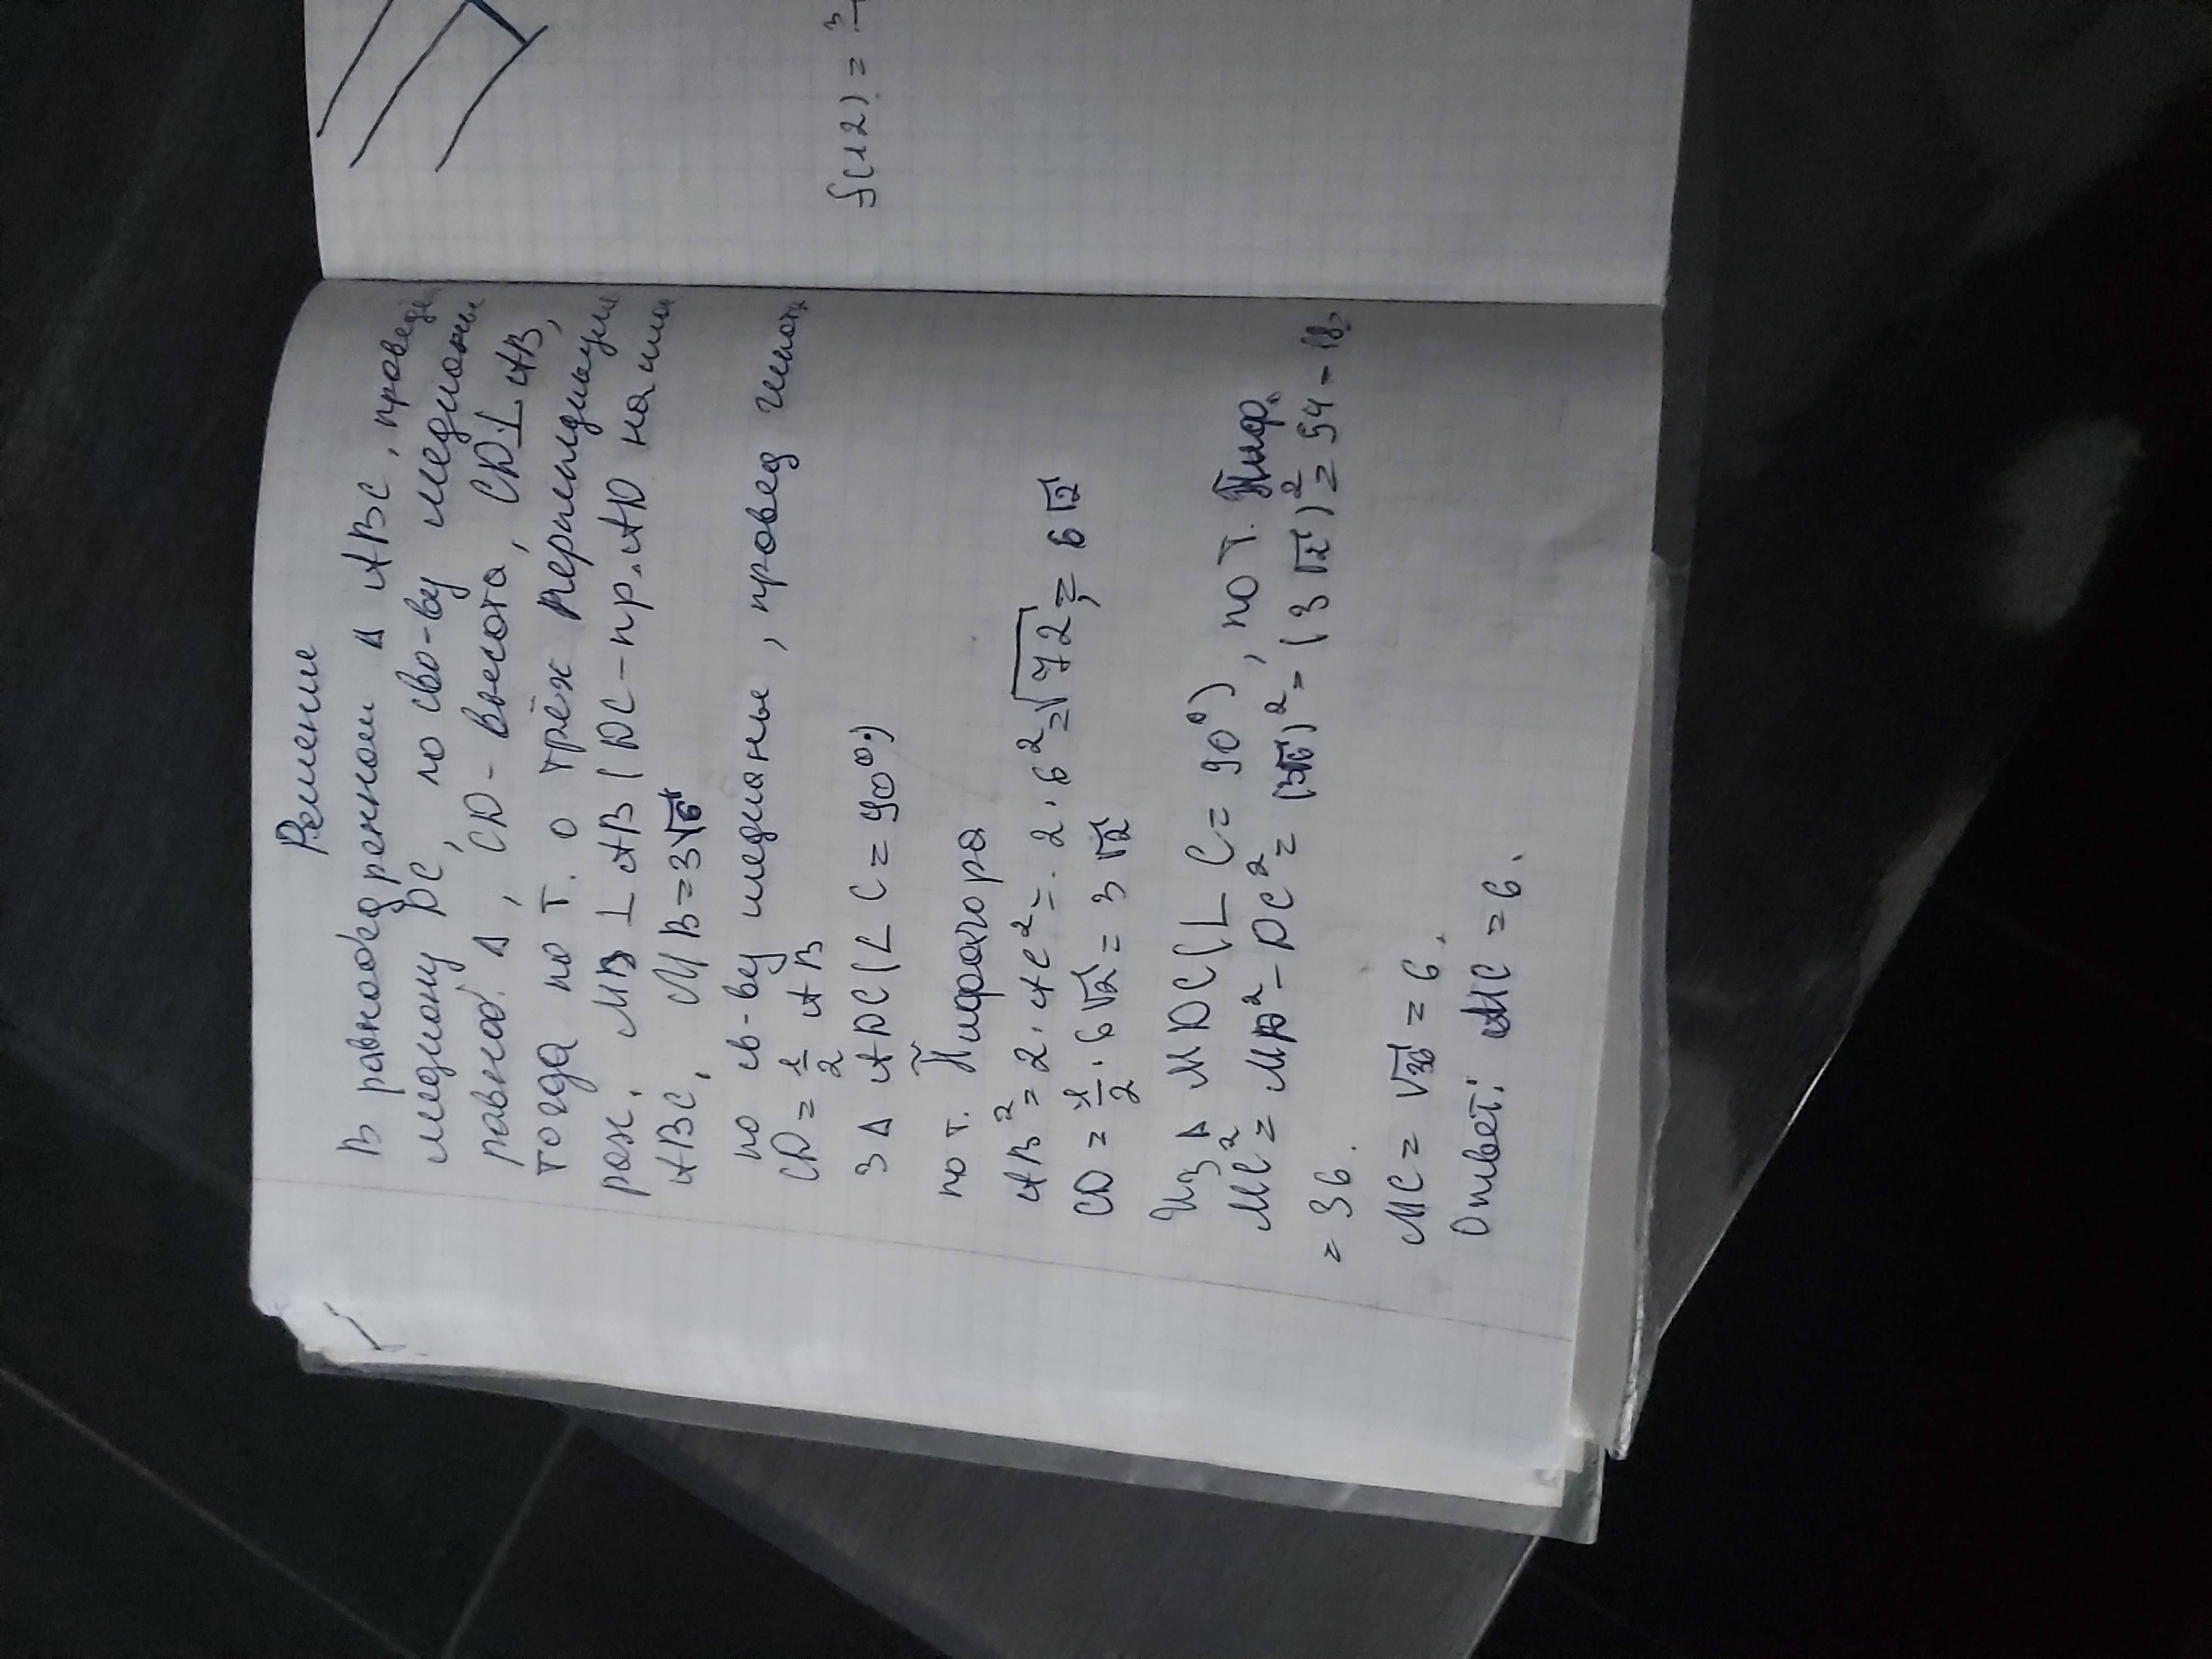 Решение
В равнобедренном Δ ABC, провед
медиану DC, по сво-ву медианы
равноб. Δ, CD - высота, CD ⊥ AB,
тогда по т. о трёх перпендикуля
рах. MD ⊥ AB (DC - пр. AD на пло
ABC, MB = 3√6
по св-ву медианы, провед гипот.
CD = 1/2 AB
З Δ ADC (∠ C = 90°)
по т. Пифагора
AB² = 2 · AC² = 2 · 6² = √72 = 6√2
CD = 1/2 · 6√2 = 3√2
Из Δ MDC (∠ C = 90°), по т. Пиф.
MC² = MD² - DC² = (3√6)² - (3√2)² = 54 - 18
= 36.
MC = √36 = 6.
Ответ: MC = 6.
f(12) = 3